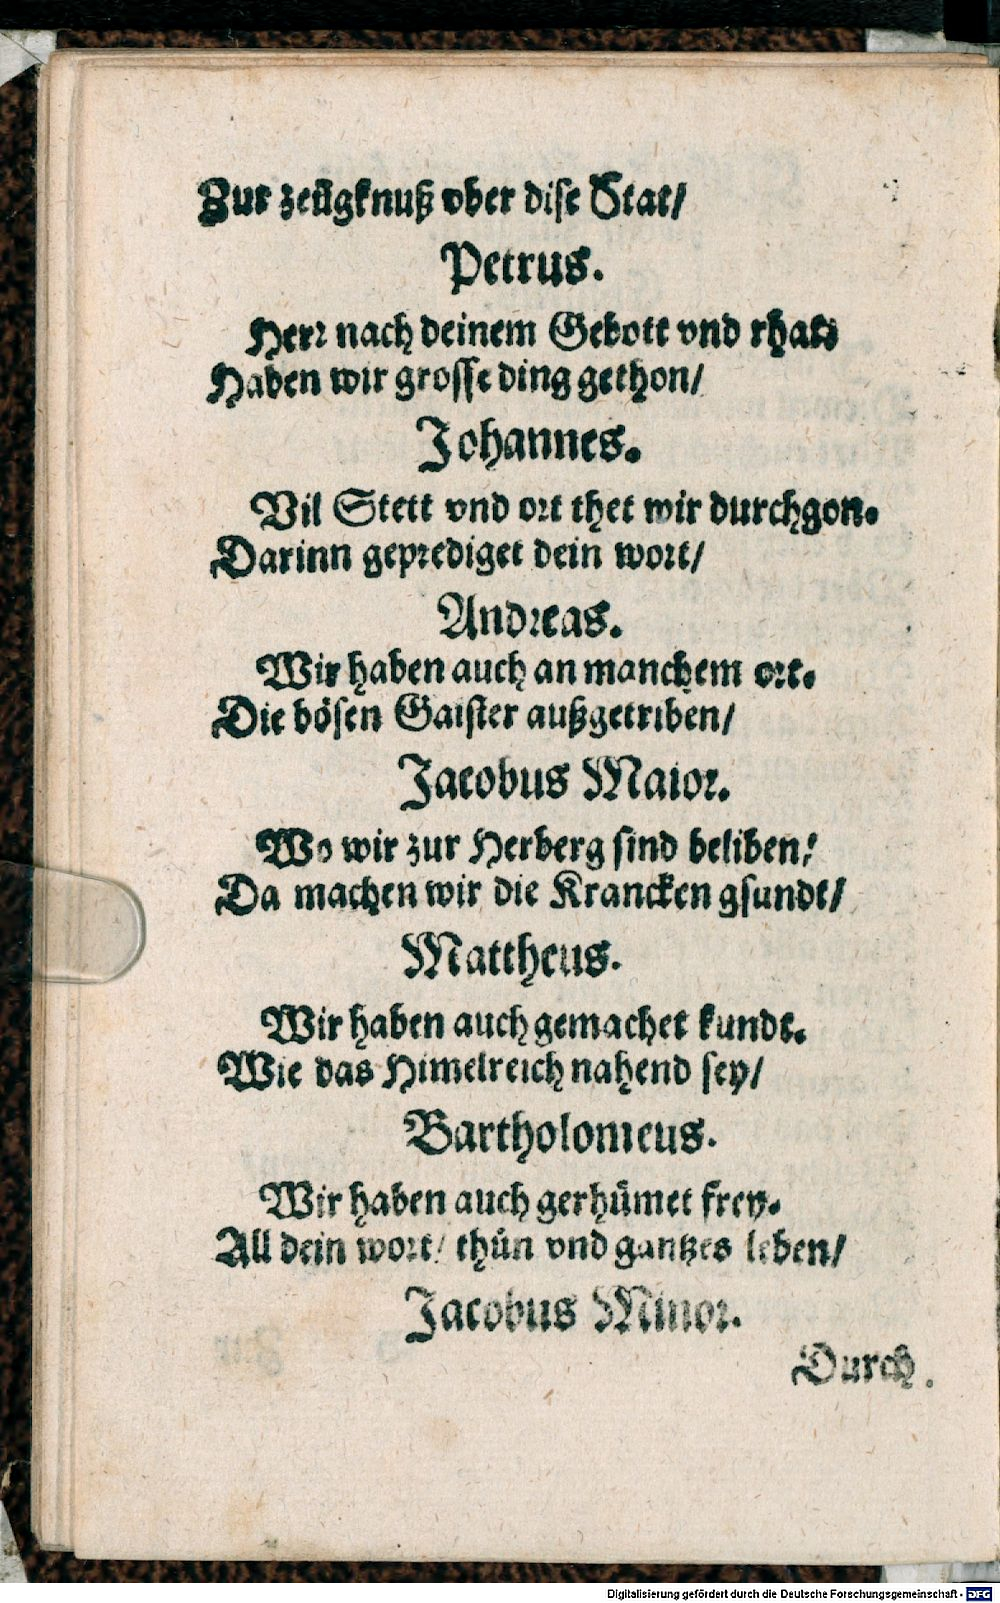 Zur zeügknuß vber dise Stat/
Petrus.
Herr nach deinem Gebott vnd rhat
Haben wir grosse ding gethon/
Johannes.
Vil Stett vnd ort thet wir durchgon.
Darinn geprediget dein wort/
Andreas.
Wir haben auch an manchem ort.
Die bösen Gaister außgetriben/
Jacobus Maior.
Wo wir zur Herberg sind beliben/
Da machen wir die Krancken gsundt/
Mattheus.
Wir haben auch gemachet kundt.
Wie das Himelreich nahend sey/
Bartholomeus.
Wir haben auch gerhümet frey.
All dein wort/ thün vnd gantzes leben/
Jacobus Minor.
Durch
Digitalisierung gefördert durch die Deutsche Forschungsgemeinschaft - DFG